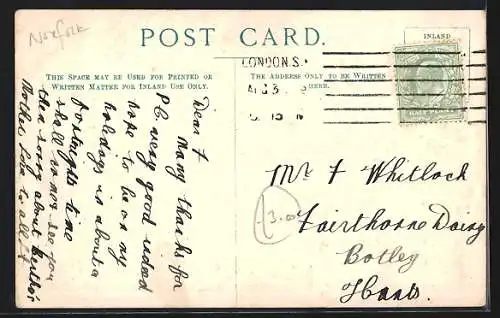 Norfolk
POST CARD.
INLAND
LONDON S.
THIS SPACE MAY BE USED FOR PRINTED OR
WRITTEN MATTER FOR INLAND USE ONLY.
THE ADDRESS ONLY TO BE WRITTEN
HERE.
HALF PENNY
Dear F
Many thanks for
P.C. very good indeed
hope to be on my
holidays in about a
fortnights time
shall so may see you
then sorry about Berthas
Mother love to all F
3.00
Mr F Whitlock
Fairthorne Dairy
Botley
Hants.